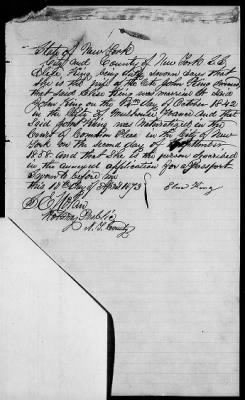 State of New York
City and County of New York S.S.
Elise King being duly sworn says that
she is the wife of the late John King
that said Elise King was married to said
John King on the 14th day of October 1842
in the City of France and that
said John King was Naturalized in the
Court of Common Pleas in the City of New
York on the second day of
1858. and that She is the person described
in the annexed application for a passport
Sworn to before me
this 15 day of April 1873
Elise King
Notary Public
N.Y. County